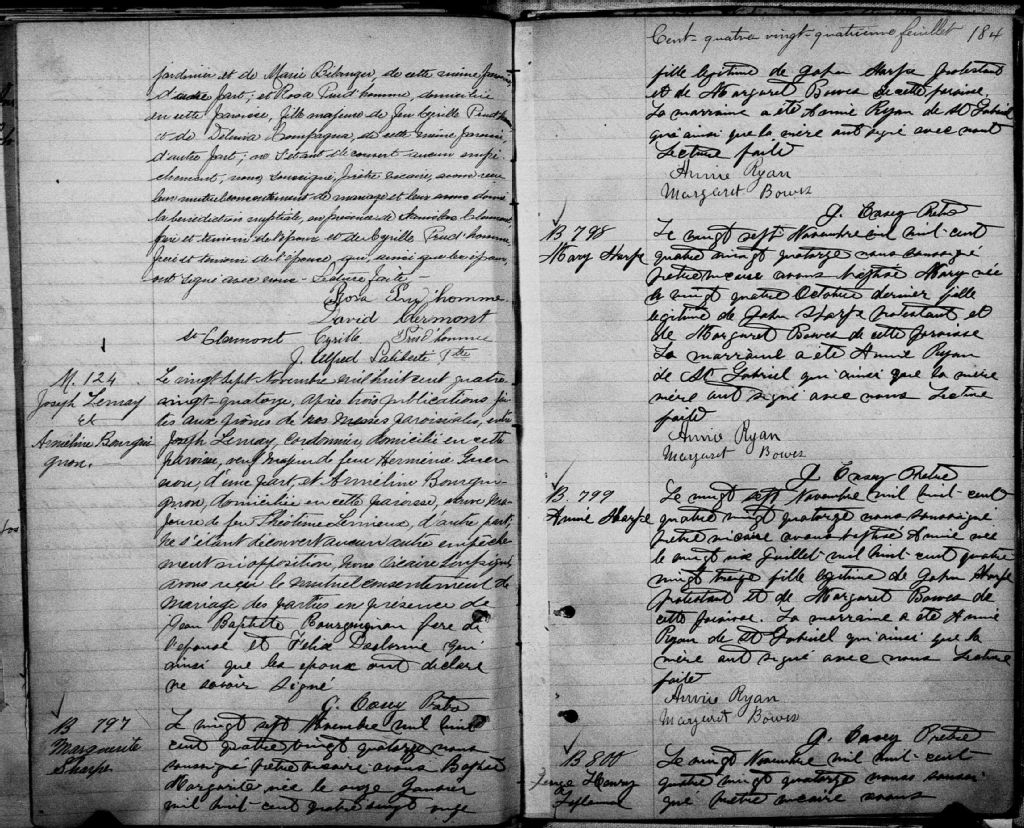 jardinier et de Marie Bélanger, de cette même paroisse,
d'autre part; et Rosa Prud'homme, domiciliée
en cette paroisse, fille majeure de feu Cyrille Prud'homme
et de Délima Compagna, de cette même paroisse,
d'autre part; ne s'étant découvert aucun empê-
chement, nous, soussigné, prêtre vicaire, avons reçu
leur mutuel consentement de mariage et leur avons donné
la bénédiction nuptiale, en présence de Stanislas Clermont,
père et témoin de l'époux et de Cyrille Prud'homme,
frère et témoin de l'épouse, qui, ainsi que les époux,
ont signé avec nous. Lecture faite.
Rosa Prud'homme
David Clermont
St Clermont Cyrille Prud'homme
J. Alfred Laliberté Ptre
M. 124
Joseph Lemay
et
Arméline Bourgui
gnon.
Le vingt sept Novembre mil huit cent quatre
vingt-quatorze, après trois publications fai-
tes aux prônes de nos messes paroissiales, entre
Joseph Lemay, cordonnier, domicilié en cette
paroisse, veuf majeur de feue Herménie Guer-
non, d'une part, et Arméline Bourgui-
gnon, domiciliée en cette paroisse, veuve ma-
jeure de feu Théotime Lemieux, d'autre part;
ne s'étant découvert aucun autre empêche-
ment ni opposition, Nous Vicaire soussigné
avons reçu le mutuel consentement de
mariage des parties en présence de
Jean Baptiste Bourguignon père de
l'épouse et Félix Deslorme qui
ainsi que les époux ont déclaré
ne savoir signé
J. Casey Ptre
B 797
Marguerite
Sharpe
Le vingt sept Novembre mil huit
cent quatre vingt quatorze nous
soussigné prêtre vicaire avons Baptisé
Margarite née le onze Janvier
mil huit-cent quatre vingt onze
Cent-quatre vingt-quatrième feuillet 184
fille legitime de John Sharpe protestant
et de Margaret Bowes de cette paroisse.
La marraine a été Annie Ryan de St Gabriel
qui ainsi que la mère ont signé avec nous
Lecture faite
Annie Ryan
Margaret Bowes
J. Casey Ptre
B 798
Mary Sharpe
Le vingt sept Novembre mil huit-cent
quatre vingt quatorze nous soussigné
prêtre vicaire avons baptisé Mary née
le vingt quatre Octobre dernier fille
legitime de John Sharpe protestant et
de Margaret Bowes de cette paroisse
La marraine a été Annie Ryan
de St Gabriel qui ainsi que la mère
mère ont signé avec nous Lecture
faite
Annie Ryan
Margaret Bowes
J. Casey Prêtre
B. 799
Annie Sharpe
Le vingt sept Novembre mil huit-cent
quatre vingt quatorze nous soussigné
prêtre vicaire avons baptisé Annie née
le vingt six Juillet mil huit cent quatre
vingt treize fille legitime de John Sharpe
protestant et de Margaret Bowes de
cette paroisse. La marraine a été Annie
Ryan de St Gabriel qui ainsi que la
mère ont signé avec nous Lecture
faite
Annie Ryan
Margaret Bowes
J. Casey Prêtre
B 800
Henry
Le vingt Novembre mil huit-cent
quatre vingt quatorze nous soussi-
gné prêtre vicaire avons